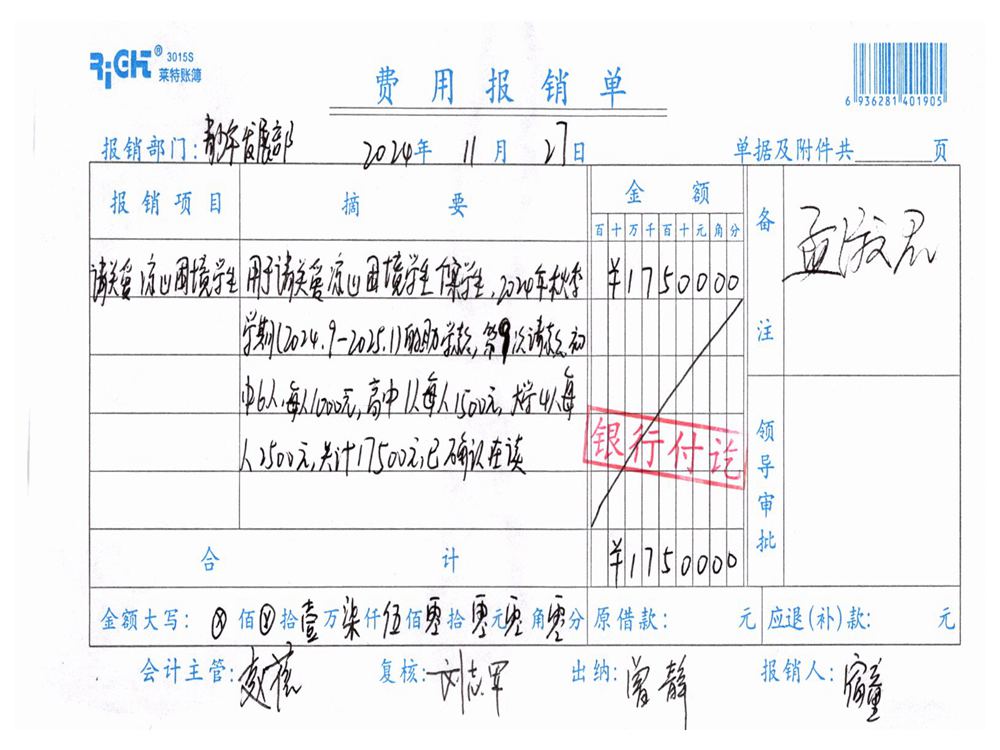 RiGHT® 3015S
莱特账簿
费用报销单
6 936281 401905
报销部门:青少年发展部 2024年11月27日 单据及附件共 页
报销项目 摘要 金额 备注
百十万千百十元角分
请关爱凉山困境学生 用于请关爱凉山困境学生僳学生,2024年秋季 ¥1750000
学期(2024.9-2025.1)的助学款,第9次请款,初
中6人,每人1000元,高中1人每人1500元,大学4人每
人2500元,共计17500元,已确认在读
银行付讫
领导审批
合计 ¥1750000
金额大写:ⓧ佰ⓧ拾壹万柒仟伍佰零拾零元零角零分 原借款: 元 应退(补)款: 元
会计主管: 复核:刘志军 出纳:曾静 报销人: